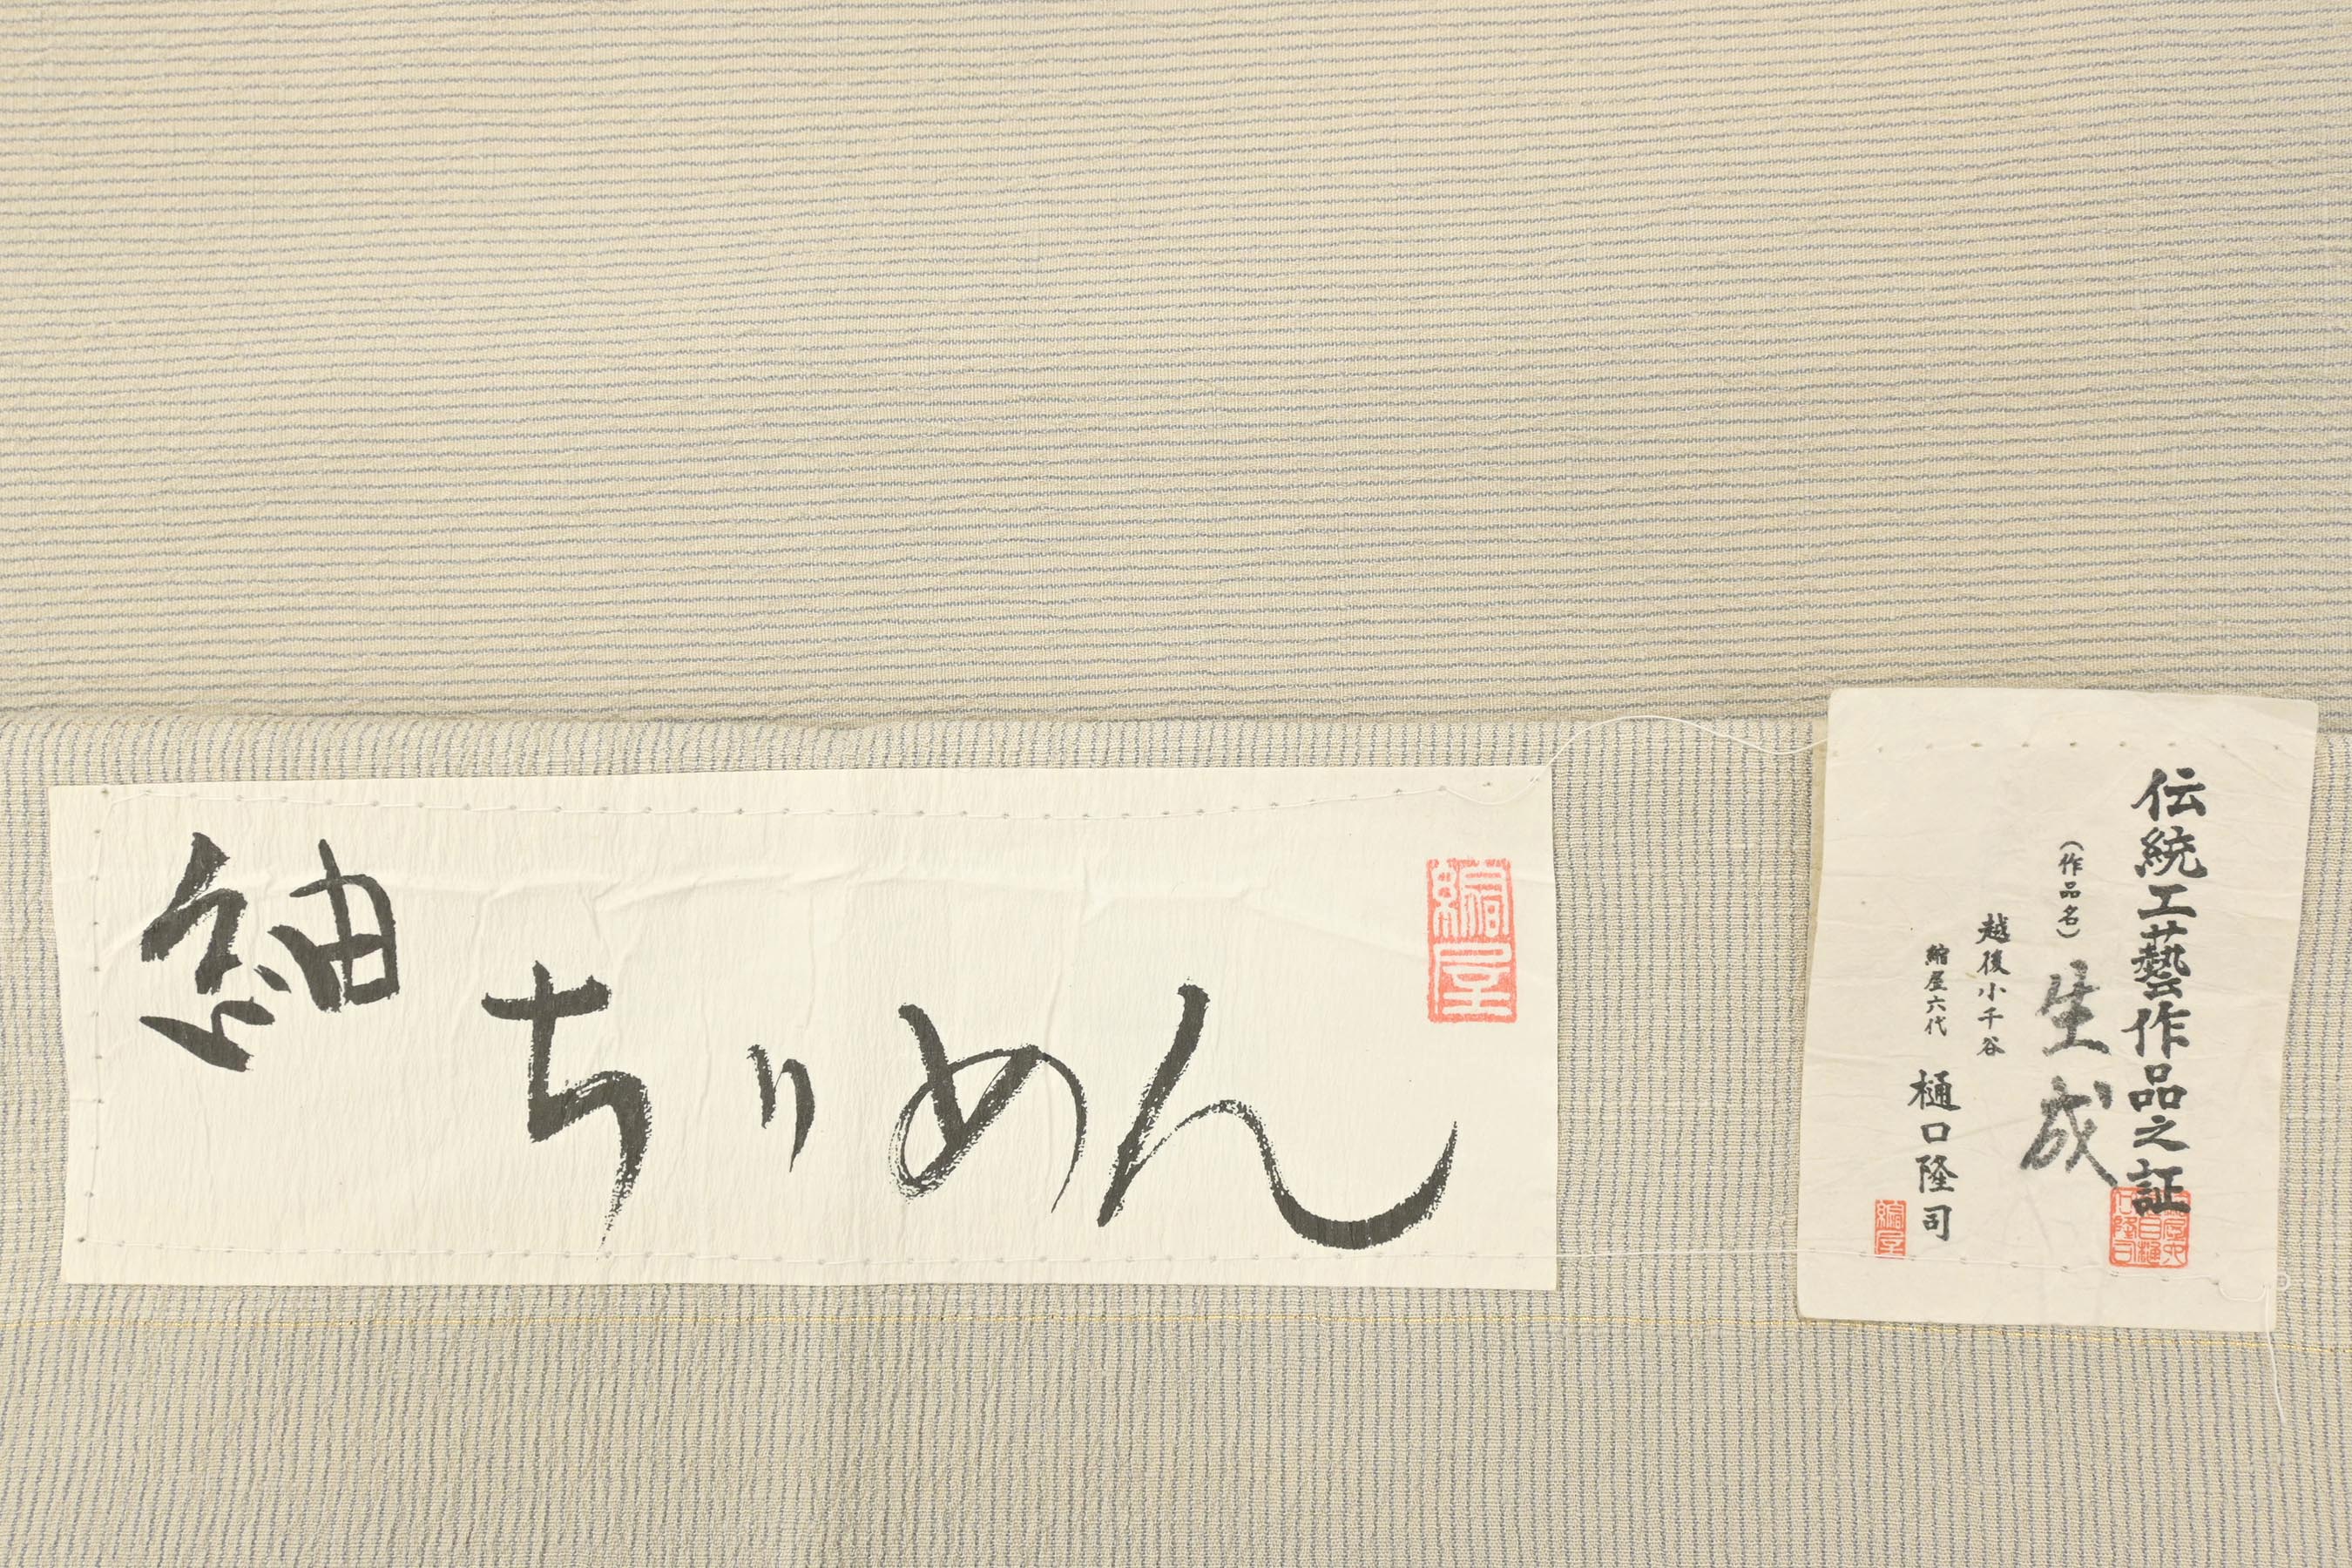 紬ちりめん
縮屋
伝統工藝作品之証
(作品名) 生成
越後小千谷
縮屋六代 樋口隆司
縮屋